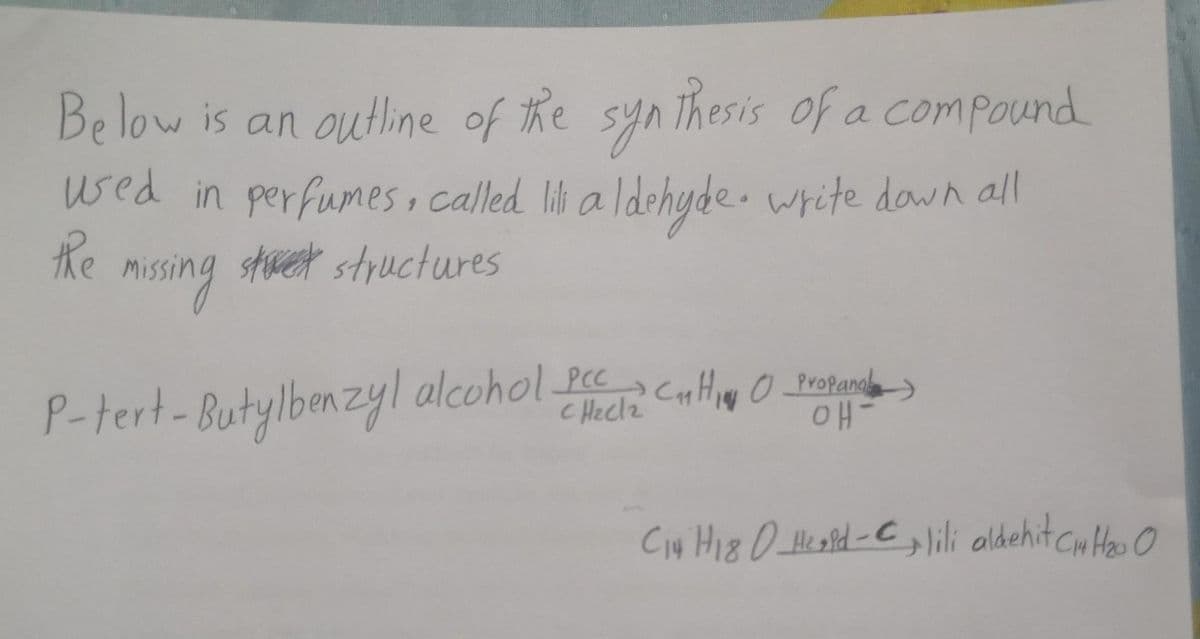 Below is an outline of the synthesis of a compound
used in perfumes, called lili aldehyde. write down all
the missing structures
P-tert-Butylbenzyl alcohol PCC CH2Cl2 → C11H14 O Propanal OH- →
C14 H18 O H2, Pd-C → lili aldehit C14 H20 O